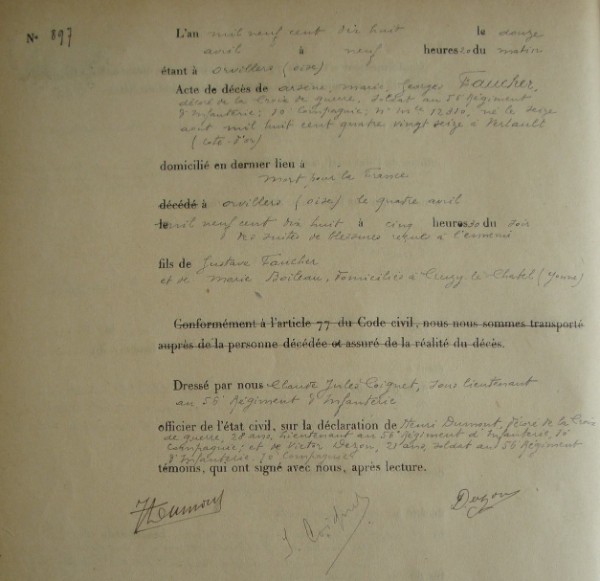 N° 897
L'an mil neuf cent dix huit le douze
avril à neuf heures 20 du matin
étant à orvillers (oise)
Acte de décès de arsène, marie, Georges Faucher,
décoré de la Croix de guerre, soldat au 56 Régiment
d'Infanterie; 10 Compagnie; N° mle 12880, né le seize
août mil huit cent quatre vingt seize à Vertault
(cote-d'or)
domicilié en dernier lieu à
mort pour la France
décédé à orvillers (oise) le quatre avril
le mil neuf cent dix huit à cinq heures 30 du soir
des suites de blessures reçues à l'ennemi
fils de Gustave Faucher
et de marie Boileau, Domiciliés à Cruzy-le-Chatel (Yonne)
Conformément à l'article 77 du Code civil, nous nous sommes transporté
auprès de la personne décédée et assuré de la réalité du décès.
Dressé par nous Claude Jules Coignet, sous lieutenant
au 56e Régiment d'Infanterie
officier de l'état civil, sur la déclaration de Henri Dumont, décoré de la Croix
de guerre, 28 ans, Lieutenant au 56e Régiment d'Infanterie, 10
Compagnie; et de Victor Dezon, 21 ans, soldat au 56 Régiment
d'Infanterie 10 Compagnie
témoins, qui ont signé avec nous, après lecture.
HDumont
J. Coignet
Dezon